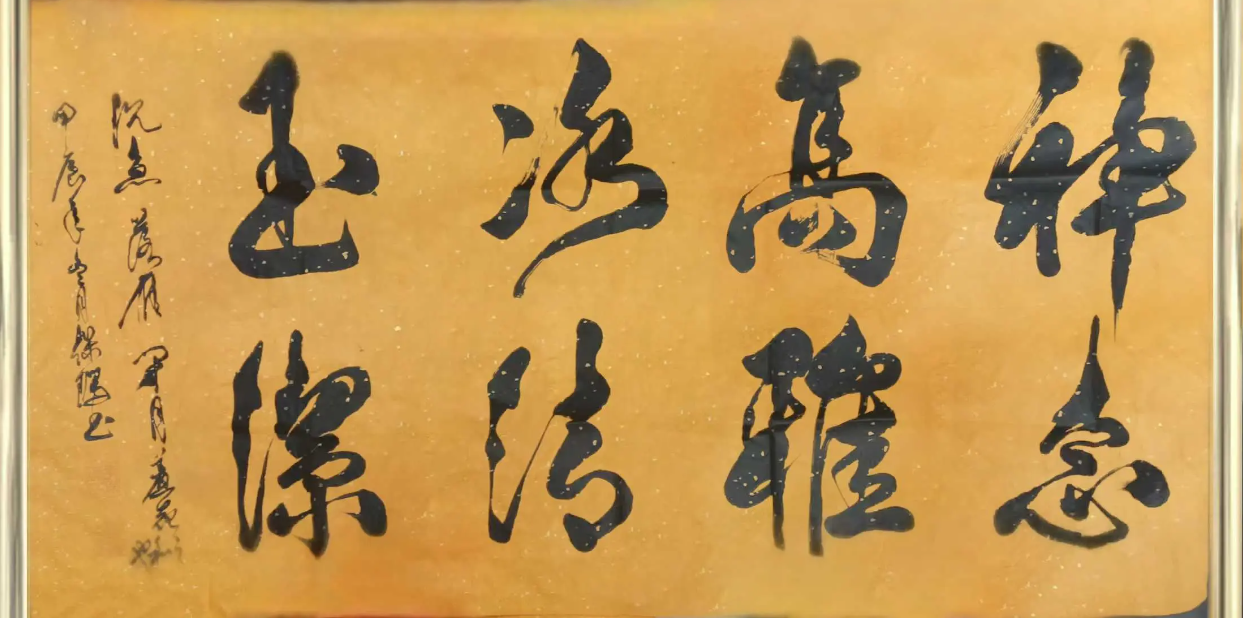 神念
高雅
冰清
玉潔
沉魚落雁閉月羞花
甲辰年